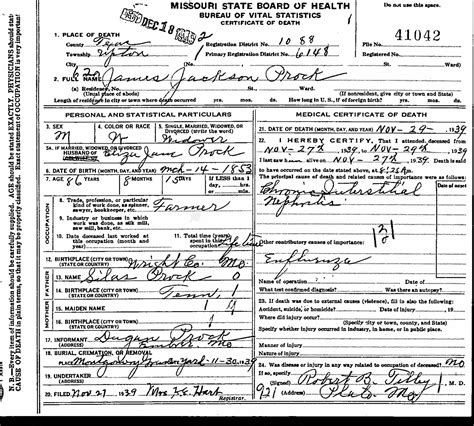 MISSOURI STATE BOARD OF HEALTH
BUREAU OF VITAL STATISTICS
CERTIFICATE OF DEATH
Do not use this space.
DEC 18
1. PLACE OF DEATH
County Texas
Township Upton
Registration District No. 1088
Primary Registration District No. 6148
41042
2. FULL NAME James Jackson Prock
(a) Residence, No.
(Usual place of abode)
(If nonresident, give city or town and State)
Length of residence in city or town where death occurred yrs. mos. ds. How long in U. S., if of foreign birth? yrs. mos. ds.
PERSONAL AND STATISTICAL PARTICULARS
3. SEX
M
4. COLOR OR RACE
W
5. SINGLE, MARRIED, WIDOWED, OR DIVORCED (write the word)
Widower
5A. IF MARRIED, WIDOWED, OR DIVORCED
HUSBAND OF Eliza Jane Prock
6. DATE OF BIRTH (MONTH, DAY, AND YEAR) Mch-14-1853
7. AGE YEARS MONTHS DAYS If LESS than 1
86 8 15
OCCUPATION
8. Trade, profession, or particular kind of work done, as spinner, sawyer, bookkeeper, etc. Farmer
9. Industry or business in which work was done, as silk mill, saw mill, bank, etc.
10. Date deceased last worked at this occupation (month and year)
11. Total time (years) spent in this occupation Life time
12. BIRTHPLACE (CITY OR TOWN) Wright Co.
(STATE OR COUNTRY) Mo.
FATHER
13. NAME Silas Prock
14. BIRTHPLACE (CITY OR TOWN)
(STATE OR COUNTRY) Tenn
MOTHER
15. MAIDEN NAME
16. BIRTHPLACE (CITY OR TOWN)
(STATE OR COUNTRY)
17. INFORMANT Prock
(ADDRESS)
18. BURIAL, CREMATION, OR REMOVAL
PLACE Montgomery Grave Yard 11-30-39
19. UNDERTAKER
(ADDRESS)
20. FILED Nov. 27, 1939 Mrs. Hart
Registrar.
MEDICAL CERTIFICATE OF DEATH
21. DATE OF DEATH (MONTH, DAY, AND YEAR) Nov-29-1939
22. I HEREBY CERTIFY, That I attended deceased from
Nov-27th, 1939, to Nov-27th, 1939
I last saw him alive on Nov-27th, 1939 death is said
to have occurred on the date stated above, at
The principal cause of death and related causes of importance were as follows:
Chronic Interstitial
Nephritis
131
Other contributory causes of importance:
Enfluenza
Name of operation Date of
What test confirmed diagnosis? Was there an autopsy?
23. If death was due to external causes (violence), fill in also the following:
Accident, suicide, or homicide? Date of injury 19
Where did injury occur?
(Specify city or town, county, and State)
Specify whether injury occurred in industry, in home, or in public place.
Manner of injury
Nature of injury
24. Was disease or injury in any way related to occupation of deceased?
If so, specify
(Signed) Robert B. Tilley, M. D.
921 (Address) Plato Mo
N. B.—Every item of information should be carefully supplied. AGE should be stated EXACTLY. PHYSICIANS should state
CAUSE OF DEATH in plain terms, so that it may be properly classified. Exact statement of OCCUPATION is very important!